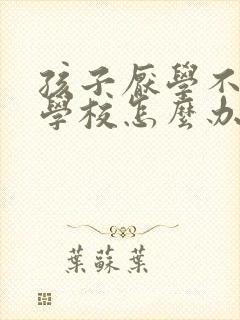 孩子厭學不
學校怎麼办
葉蘇葉